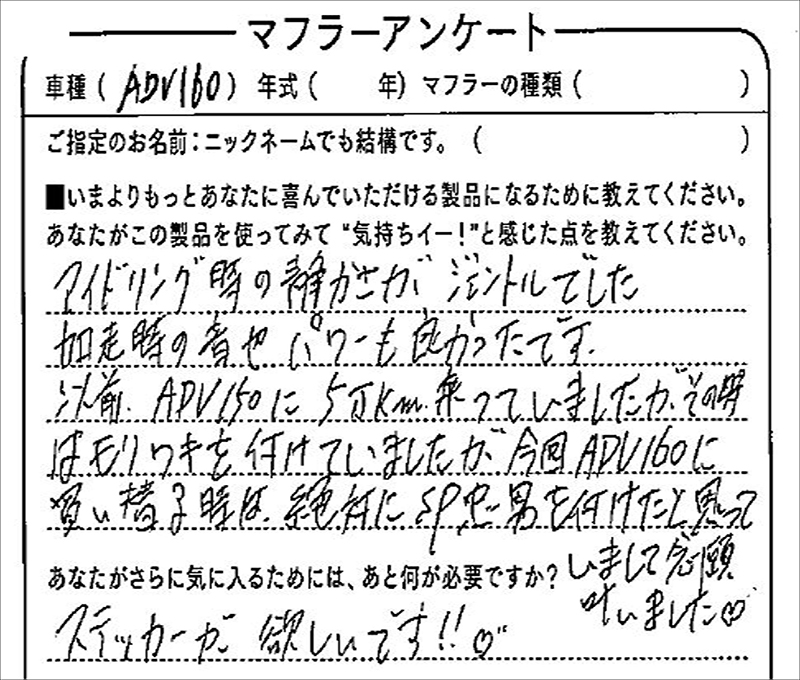 マフラーアンケート
車種（ ADV160 ） 年式（ 年） マフラーの種類（ ）
ご指定のお名前：ニックネームでも結構です。（ ）
■いまよりもっとあなたに喜んでいただける製品になるために教えてください。
あなたがこの製品を使ってみて “気持ちイー！”と感じた点を教えてください。
アイドリング時の静かさが ジェントルでした
加走時の音や パワーも良かったです.
以前. ADV150に 5万Km.乗っていましたが、その時
はモリワキを付けていましたが 今回ADV160に
買い替る時は、絶対に SP忠男を付けたと思って
いまして念願
叶いました♡
あなたがさらに気に入るためには、あと何が必要ですか？
ステッカーが 欲しいです!!♡